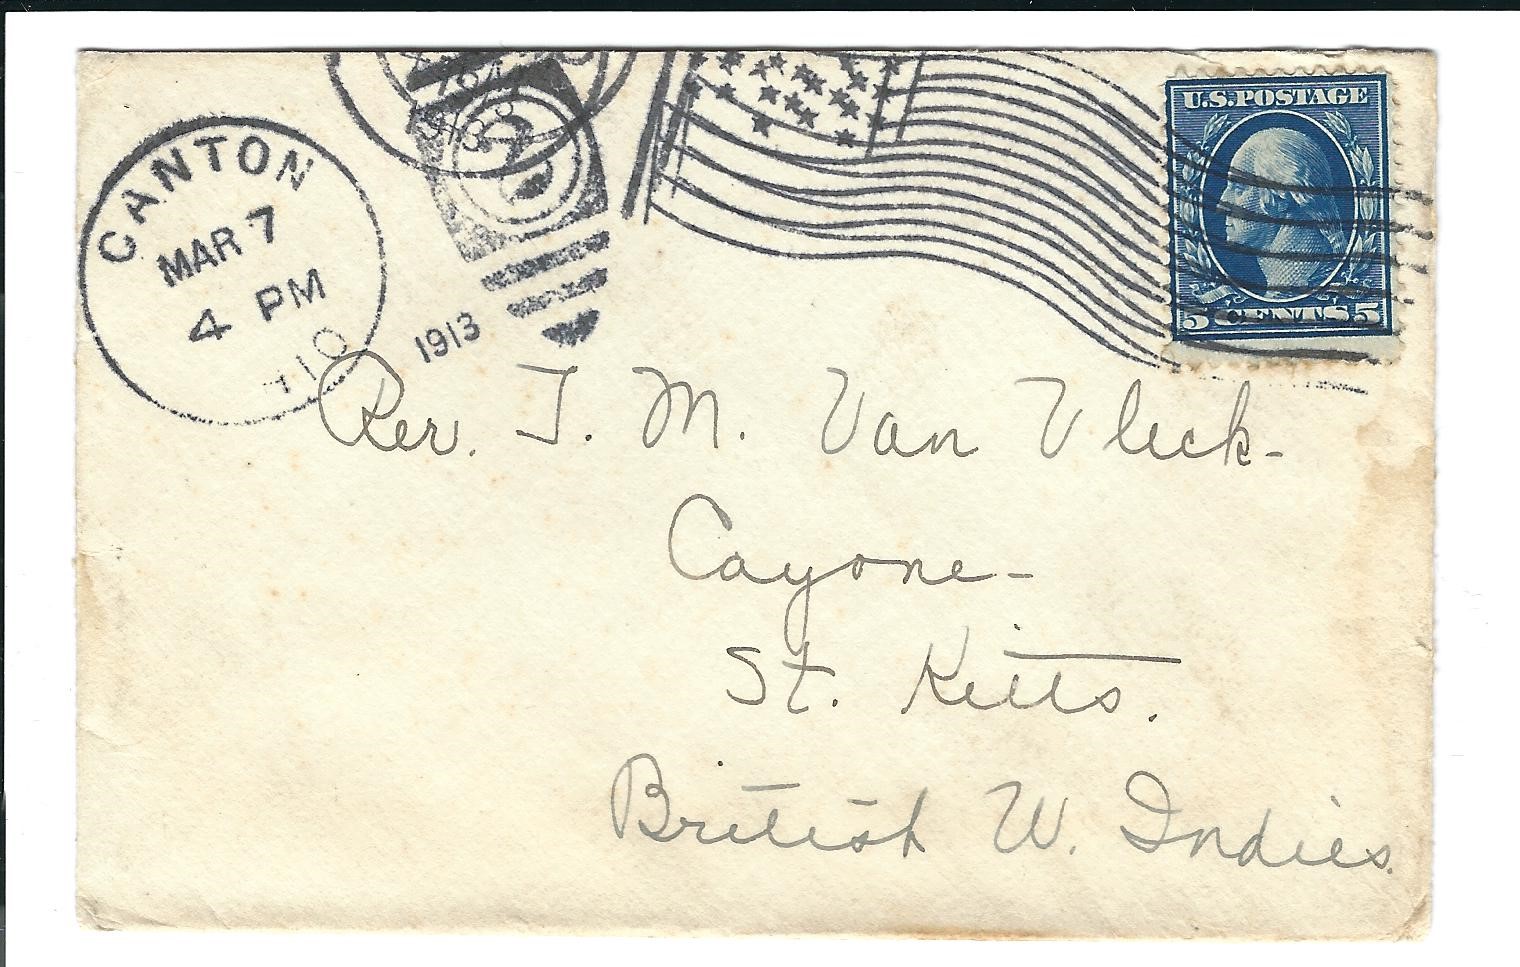 CANTON
MAR 7
4 PM
1913
U.S. POSTAGE
5 CENTS 5
Rev. T. M. Van Vleck-
Cayone-
St. Kitts.
British W. Indies.